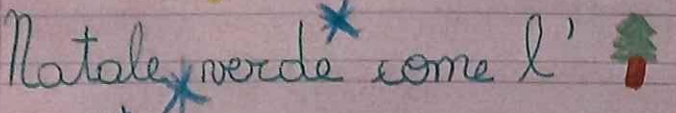 Natale verde come l'